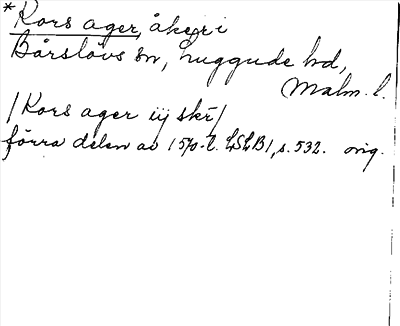 *Kors ager, åker i
Bårslövs sn, Luggude hd,
Malm. l.
/Kors ager iij skr/
förra delen av 1570-t. LSLB1, s. 532. orig.